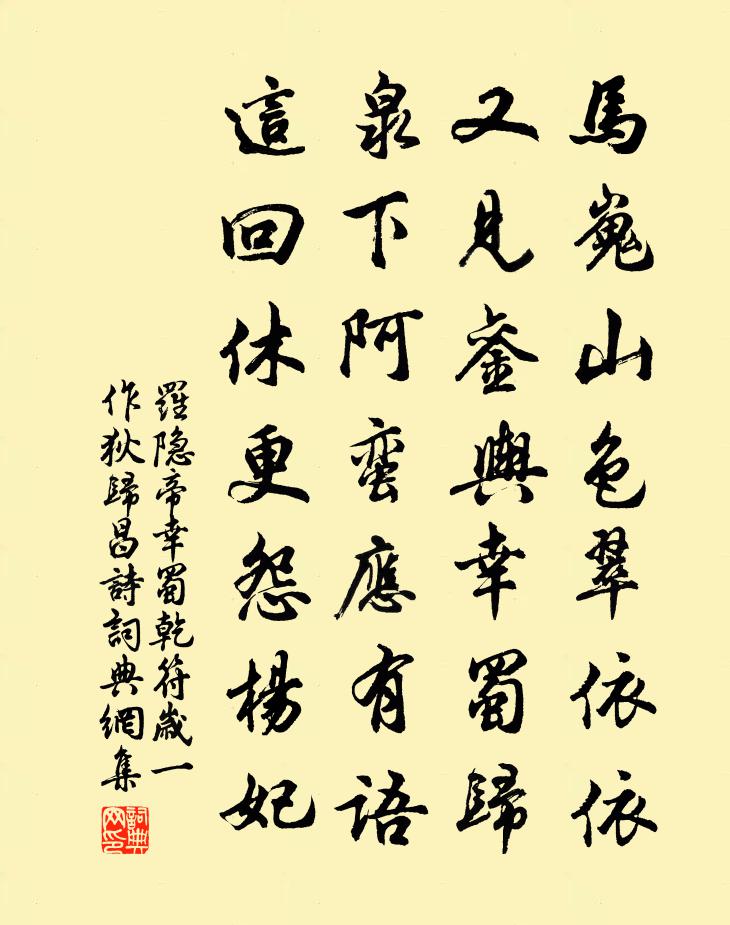 馬嵬山色翠依依
又見鑾輿幸蜀歸
泉下阿蠻應有語
這回休更怨楊妃
羅隐帝幸蜀乾符歲一
作狄歸昌詩詞典網集
詞典网印